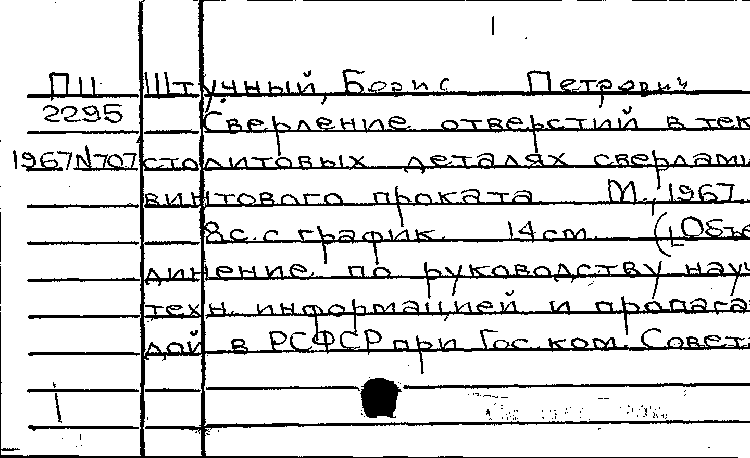 1
ПЦ Штучный, Борис Петрович
2295 Сверление отверстий в тек
1967N707 столитовых деталях сверлами
винтового проката М., 1967.
8 с. с график. 14 см. ([Объе
динение по руководству науч
техн. информацией и пропаган
дой в РСФСР при Гос. ком. Совета